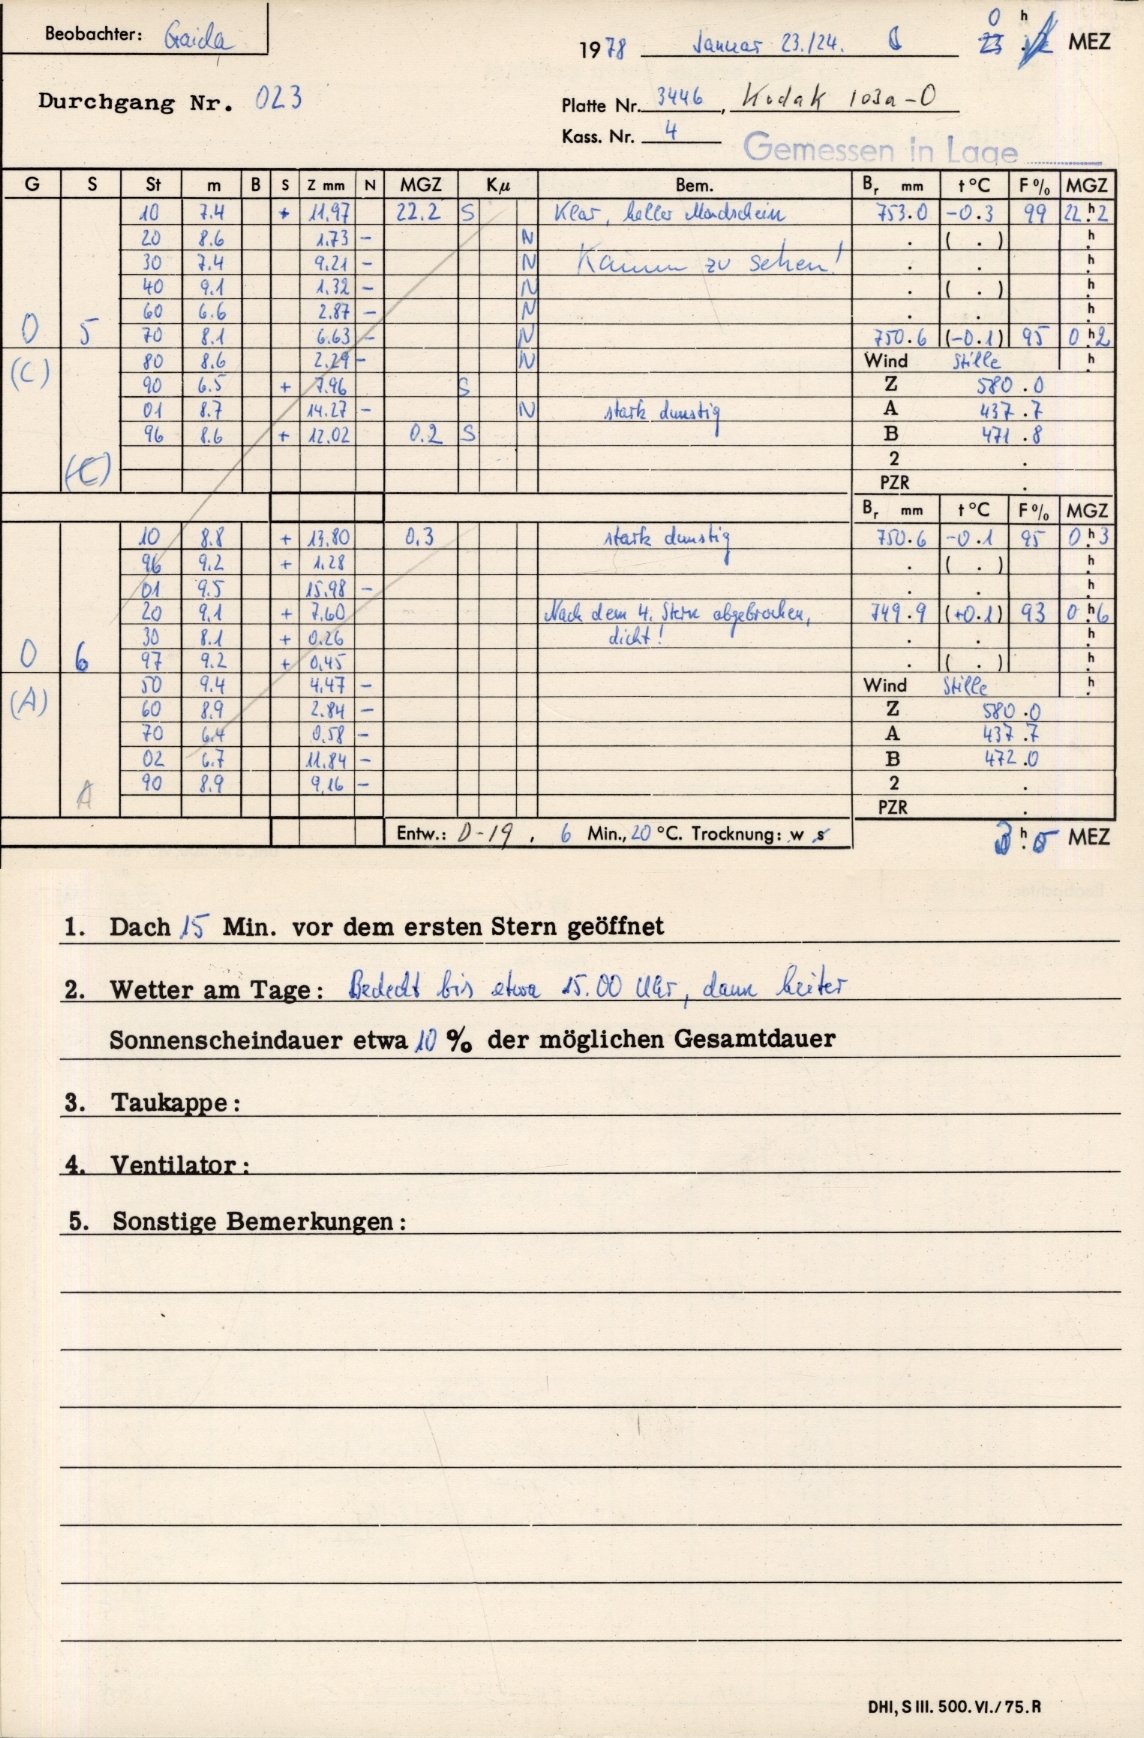 Beobachter: Gaida
1978 Januar 23./24. 0 h MEZ
Durchgang Nr. 023
Platte Nr. 3446, Kodak 103a-O
Kass. Nr. 4
Gemessen in Lage
G S St m B S Z mm N MGZ Kμ Bem. Br mm t °C F% MGZ
10 7.4 + 11.97 22.2 S Klar, heller Mondschein 753.0 -0.3 99 22h2
20 8.6 1.73 - N . ( . ) h
30 7.4 9.21 - N Kaum zu sehen! . . h
40 9.1 1.32 - N . ( . ) h
60 6.6 2.87 - N . . h
0 5 70 8.1 6.63 - N 750.6 (-0.1) 95 0h2
(C) 80 8.6 2.29 - N Wind Stille h
90 6.5 + 7.96 S Z 580.0
01 8.7 14.27 - N stark dunstig A 437.7
96 8.6 + 12.02 0.2 S B 471.8
(C) 2 .
PZR .
Br mm t °C F% MGZ
10 8.8 + 13.80 0.3 stark dunstig 750.6 -0.1 95 0h3
96 9.2 + 1.28 . ( . ) h
01 9.5 15.98 - . . h
20 9.1 + 7.60 Nach dem 4. Stern abgebrochen, 749.9 (+0.1) 93 0h6
30 8.1 + 0.26 dicht! . . h
0 6 97 9.2 + 0.45 . ( . ) h
(A) 50 9.4 4.47 - Wind Stille h
60 8.9 2.84 - Z 580.0
70 6.4 0.58 - A 437.7
02 6.7 11.84 - B 472.0
A 90 8.9 9.16 - 2 .
PZR .
Entw.: D-19, 6 Min., 20 °C. Trocknung: w s h MEZ
1. Dach 15 Min. vor dem ersten Stern geöffnet
2. Wetter am Tage: Bedeckt bis etwa 15.00 Uhr, dann heiter
Sonnenscheindauer etwa 10 % der möglichen Gesamtdauer
3. Taukappe:
4. Ventilator:
5. Sonstige Bemerkungen:
DHI, S III. 500. VI./75. R